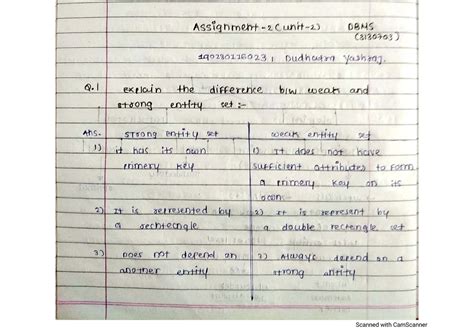 Assignment-2 (unit-2) DBMS
(3130703)
190280116023, Dudhatra Yashraj.
Q.1 explain the difference b/w weak and
strong entity set :-
Ans. strong entity set weak entity set
1) it has its own 1) It does not have
primery key sufficient attributes to form
a primery key on its
own-
2) It is represented by 2) It is represent by
a rechtecngle a double rectengle set
3) Does not depend on 2) Always depend on a
another entity strong entity
Scanned with CamScanner